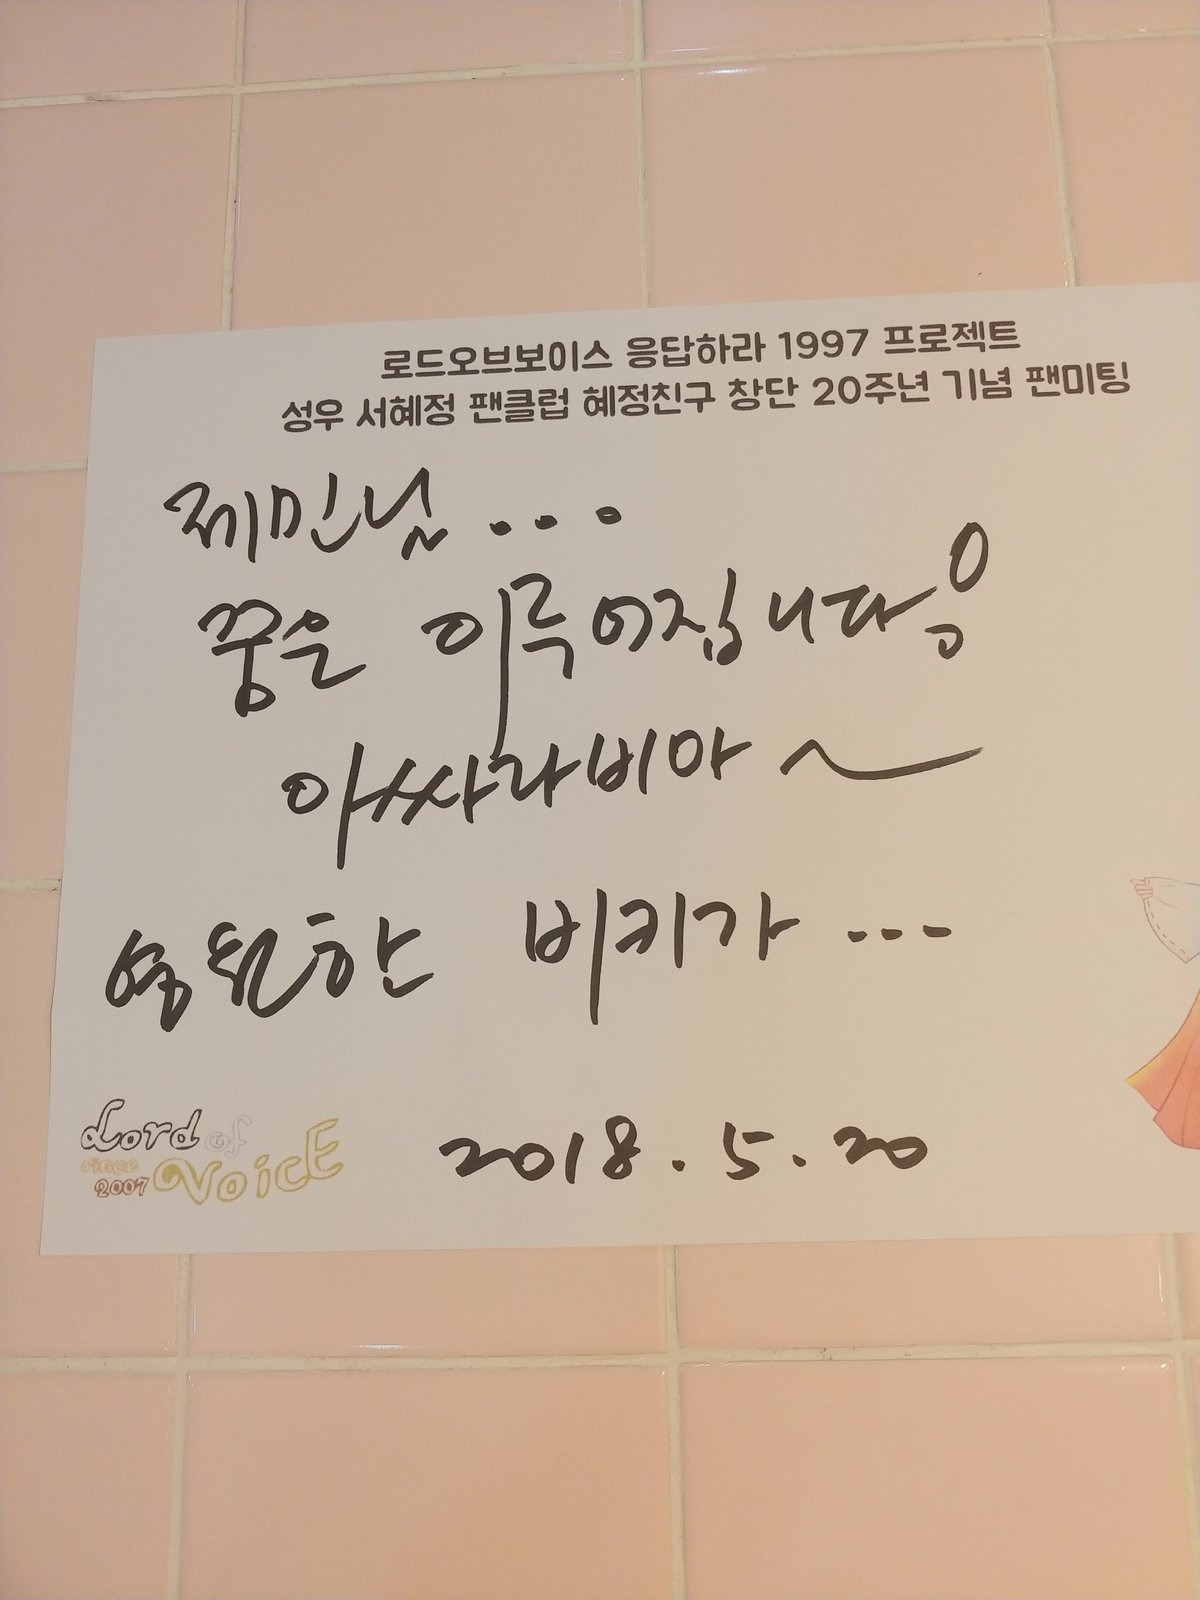 로드오브보이스 응답하라 1997 프로젝트
성우 서혜정 팬클럽 혜정친구 창단 20주년 기념 팬미팅
제민님...
꿈은 이루어집니다!
아싸라비아~
영원한 비키가...
Lord of
since
2007 VoicE
2018.5.20